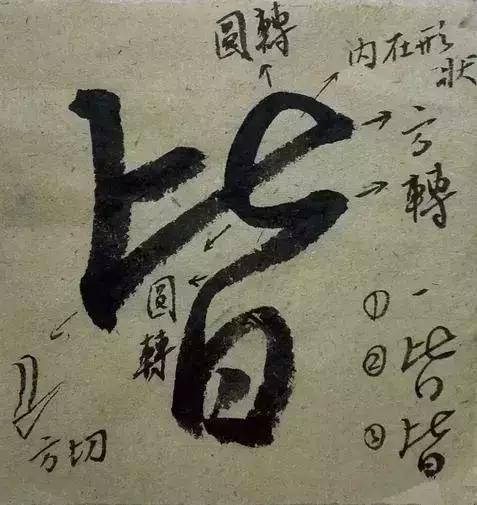 圓轉
内在形
狀
方
轉
皆
圓
轉
方切
① 一
② 皆
③ 皆